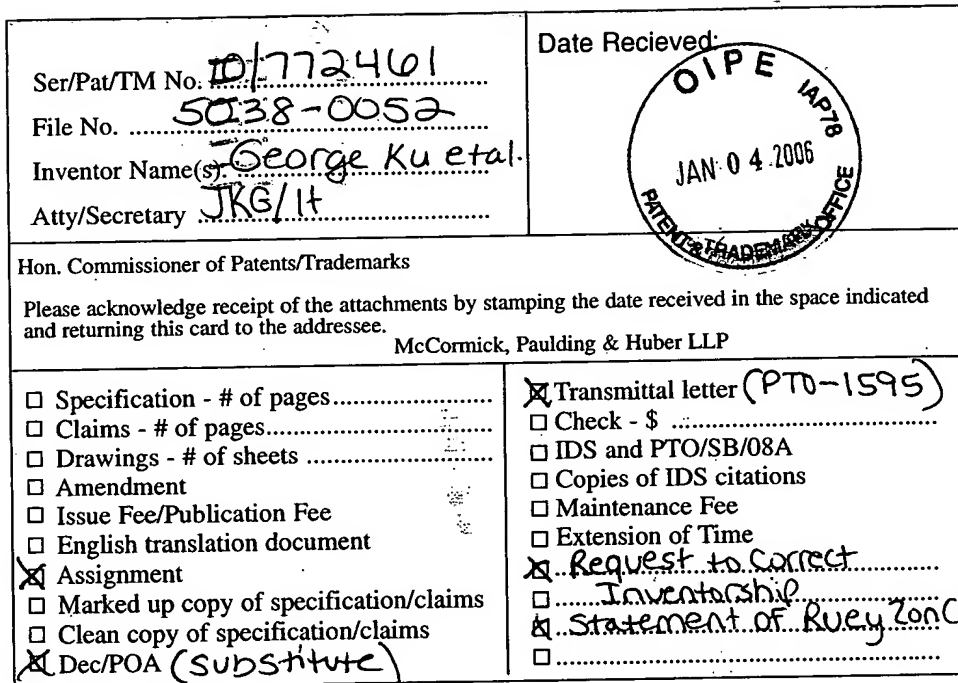 Ser/Pat/TM No. 10/772461
File No. 5038-0052
Inventor Name(s): George Ku et al.
Atty/Secretary JKG/lt
Date Recieved:
OIPE IAP78
JAN 04 2006
PATENT & TRADEMARK OFFICE
Hon. Commissioner of Patents/Trademarks
Please acknowledge receipt of the attachments by stamping the date received in the space indicated
and returning this card to the addressee.
McCormick, Paulding & Huber LLP
☐ Specification - # of pages
☐ Claims - # of pages
☐ Drawings - # of sheets
☐ Amendment
☐ Issue Fee/Publication Fee
☐ English translation document
☒ Assignment
☐ Marked up copy of specification/claims
☐ Clean copy of specification/claims
☒ Dec/POA (substitute)
☒ Transmittal letter (PTO-1595)
☐ Check - $
☐ IDS and PTO/SB/08A
☐ Copies of IDS citations
☐ Maintenance Fee
☐ Extension of Time
☒ Request to Correct
☐ Inventorship
☒ Statement of Ruey Zon C
☐